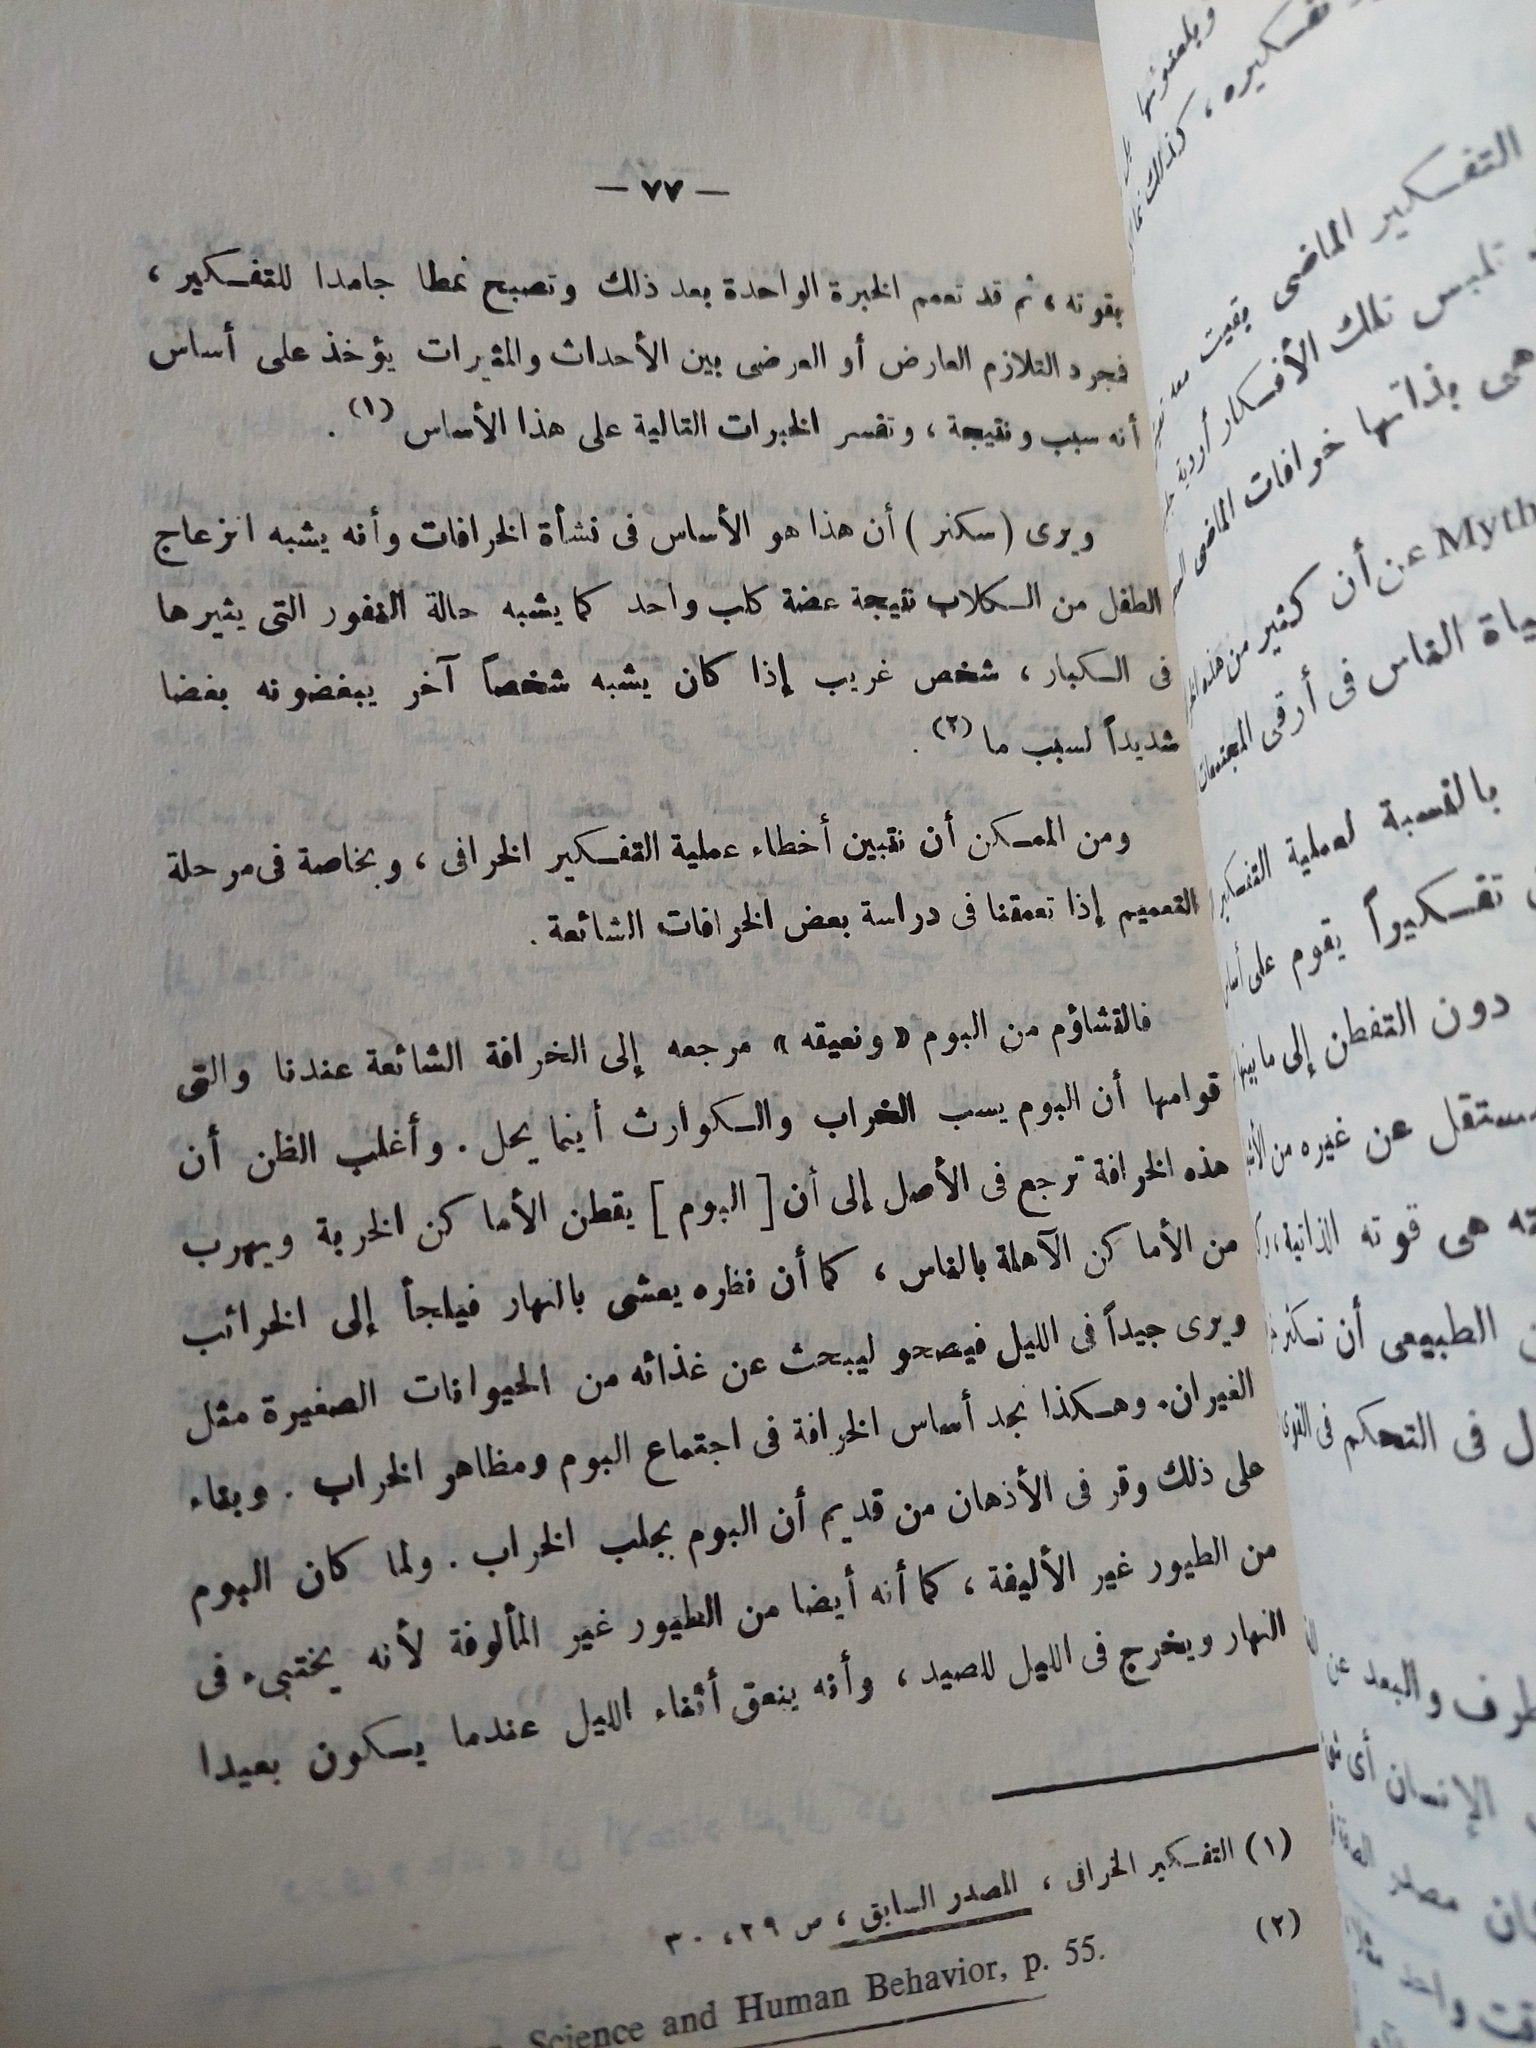 — ٧٧ —
بقوته ، ثم قد تعمم الخبرة الواحدة بعد ذلك وتصبح نمطا جامدا للتفكير ،
فمجرد التلازم العارض أو العرضى بين الأحداث والمثيرات يؤخذ على أساس
أنه سبب ونتيجة ، وتفسر الخبرات التالية على هذا الأساس (١) .
ويرى (سكنر) أن هذا هو الأساس فى نشأة الخرافات وأنه يشبه انزعاج
الطفل من الكلاب نتيجة عضة كلب واحد كما يشبه حالة النفور التى يثيرها
فى الكبار ، شخص غريب إذا كان يشبه شخصاً آخر يبغضونه بغضا
شديداً لسبب ما (٢) .
ومن الممكن أن نتبين أخطاء عملية التفكير الخرافى ، وبخاصة فى مرحلة
التعميم إذا تعمقنا فى دراسة بعض الخرافات الشائعة .
فالتشاؤم من البوم « ونعيقه » مرجعه إلى الخرافة الشائعة عندنا والتى
قوامها أن البوم يسبب الخراب والكوارث أينما يحل . وأغلب الظن أن
هذه الخرافة ترجع فى الأصل إلى أن [ البوم ] يقطن الأماكن الخربة ويهرب
من الأماكن الآهلة بالناس ، كما أن نظره يعشى بالنهار فيلجأ إلى الخرائب
ويرى جيداً فى الليل فيصحو ليبحث عن غذائه من الحيوانات الصغيرة مثل
الفيران. وهكذا نجد أساس الخرافة فى اجتماع البوم ومظاهر الخراب . وبناء
على ذلك وقر فى الأذهان من قديم أن البوم يجلب الخراب . ولما كان البوم
من الطيور غير الأليفة ، كما أنه أيضا من الطيور غير المألوفة لأنه يختبىء فى
النهار ويخرج فى الليل للصيد ، وأنه ينعق أثناء الليل عندما يكون بعيدا
(١) التفكير الخرافى ، المصدر السابق ، ص ٢٩ ، ٣٠
(٢)
Science and Human Behavior, p. 55.
ويلعنونها بل
تفكيره ، كذلك
التفكير الماضى بقيت معه
تلبس تلك الأفكار أردية
هى بذاتها خرافات الماضى
Myth عن أن كثير من هذه
الناس فى أرقى المجتمعات
بالنسبة لعملية التفكير
تفكيراً يقوم على
دون التفطن إلى ما بينها
مستقل عن غيره من
هى قوته الذاتية ،
الطبيعى أن
فى التحكم فى القوى
والبعد عن
الإنسان أى
مصدر